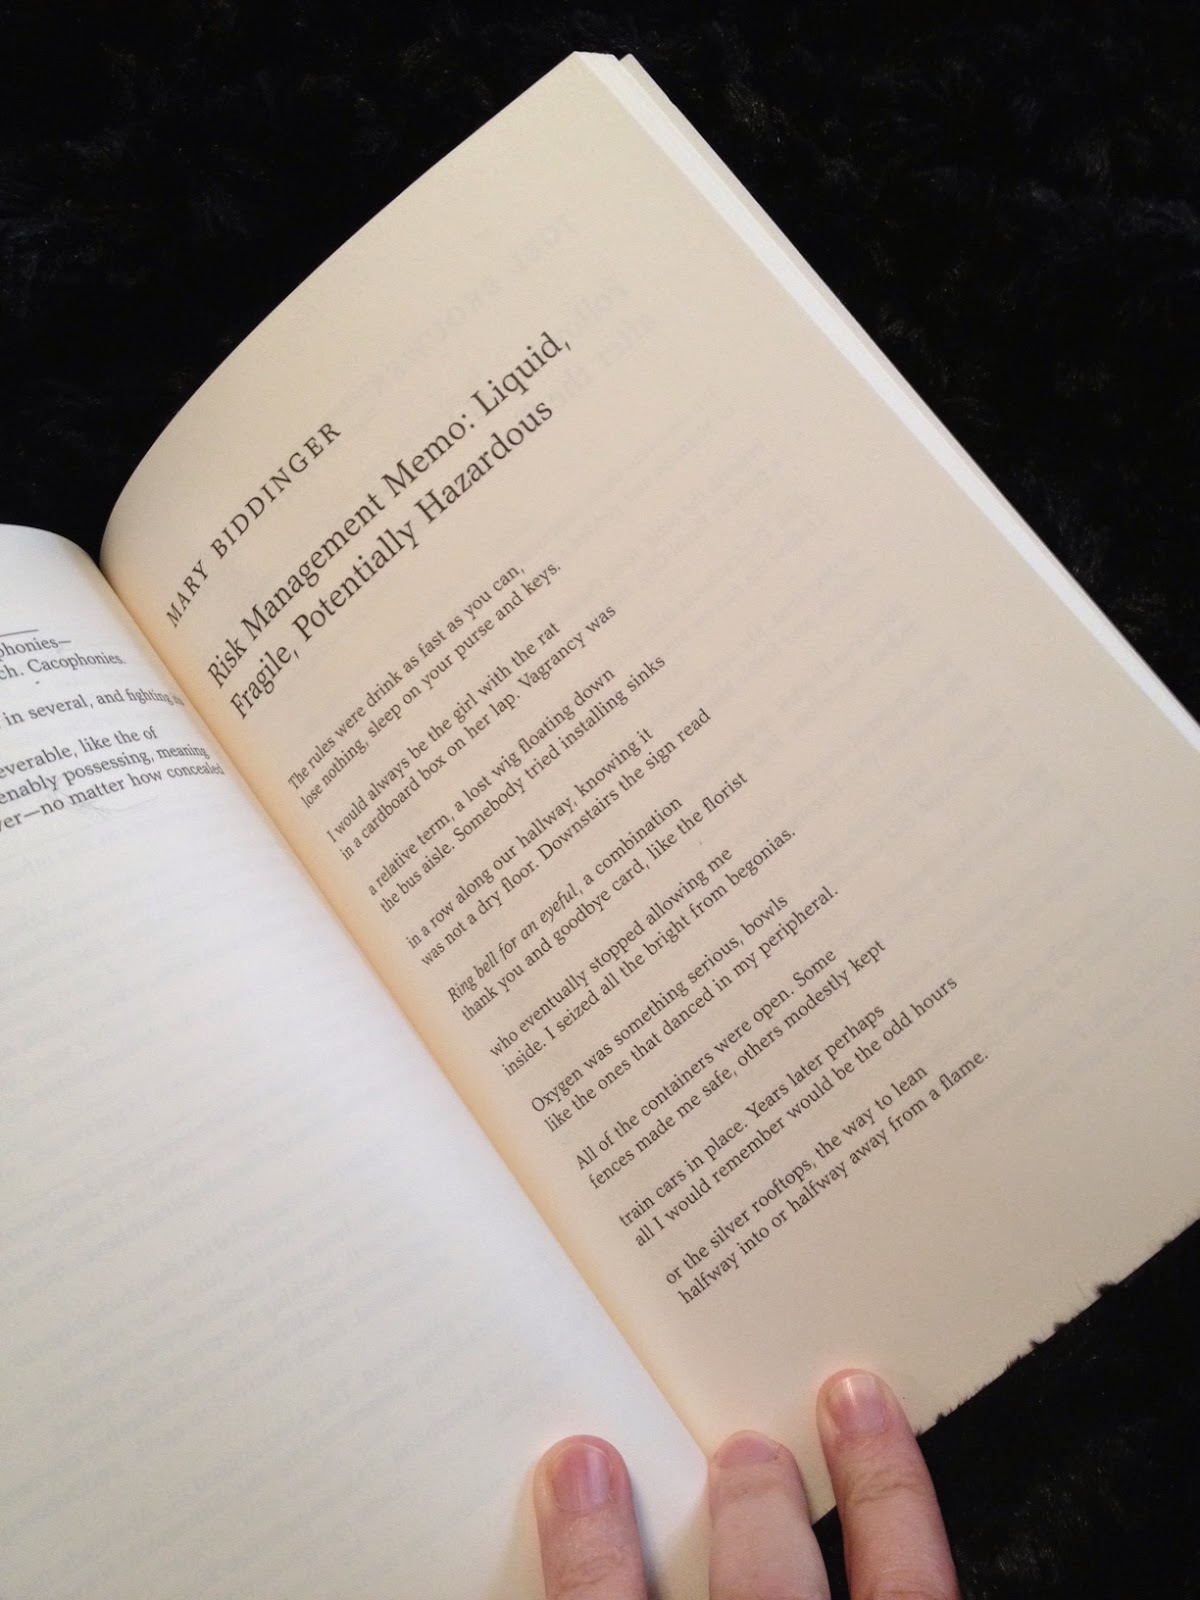 phonies—
ch. Cacophonies.
in several, and fighting
everable, like the of
enably possessing, meaning
ver—no matter how concealed
MARY BIDDINGER
Risk Management Memo: Liquid,
Fragile, Potentially Hazardous
The rules were drink as fast as you can,
lose nothing, sleep on your purse and keys.
I would always be the girl with the rat
in a cardboard box on her lap. Vagrancy was
a relative term, a lost wig floating down
the bus aisle. Somebody tried installing sinks
in a row along our hallway, knowing it
was not a dry floor. Downstairs the sign read
Ring bell for an eyeful, a combination
thank you and goodbye card, like the florist
who eventually stopped allowing me
inside. I seized all the bright from begonias.
Oxygen was something serious, bowls
like the ones that danced in my peripheral.
All of the containers were open. Some
fences made me safe, others modestly kept
train cars in place. Years later perhaps
all I would remember would be the odd hours
or the silver rooftops, the way to lean
halfway into or halfway away from a flame.